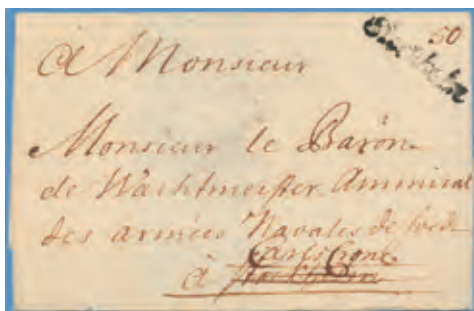 50
à Monsieur
Monsieur le Baron
de Wachtmeister Ammiral
des armées Navales de
Carls Crone
à